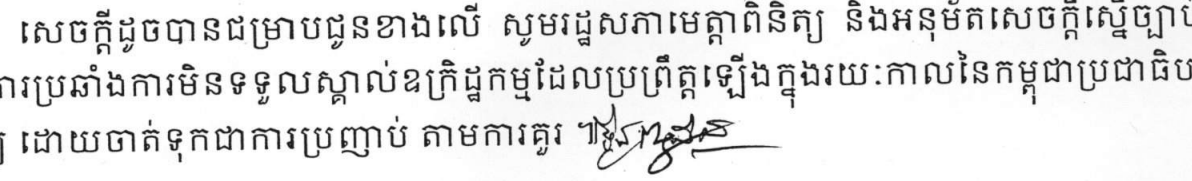 សេចក្ដីដូចបានជម្រាបជូនខាងលើ សូមរដ្ឋសភាមេត្តាពិនិត្យ និងអនុម័តសេចក្ដីស្នើច្បាប់
ការប្រឆាំងការមិនទទួលស្គាល់ឧក្រិដ្ឋកម្មដែលប្រព្រឹត្តឡើងក្នុងរយៈកាលនៃកម្ពុជាប្រជាធិប
ដោយចាត់ទុកជាការប្រញាប់ តាមការគួរ ៕